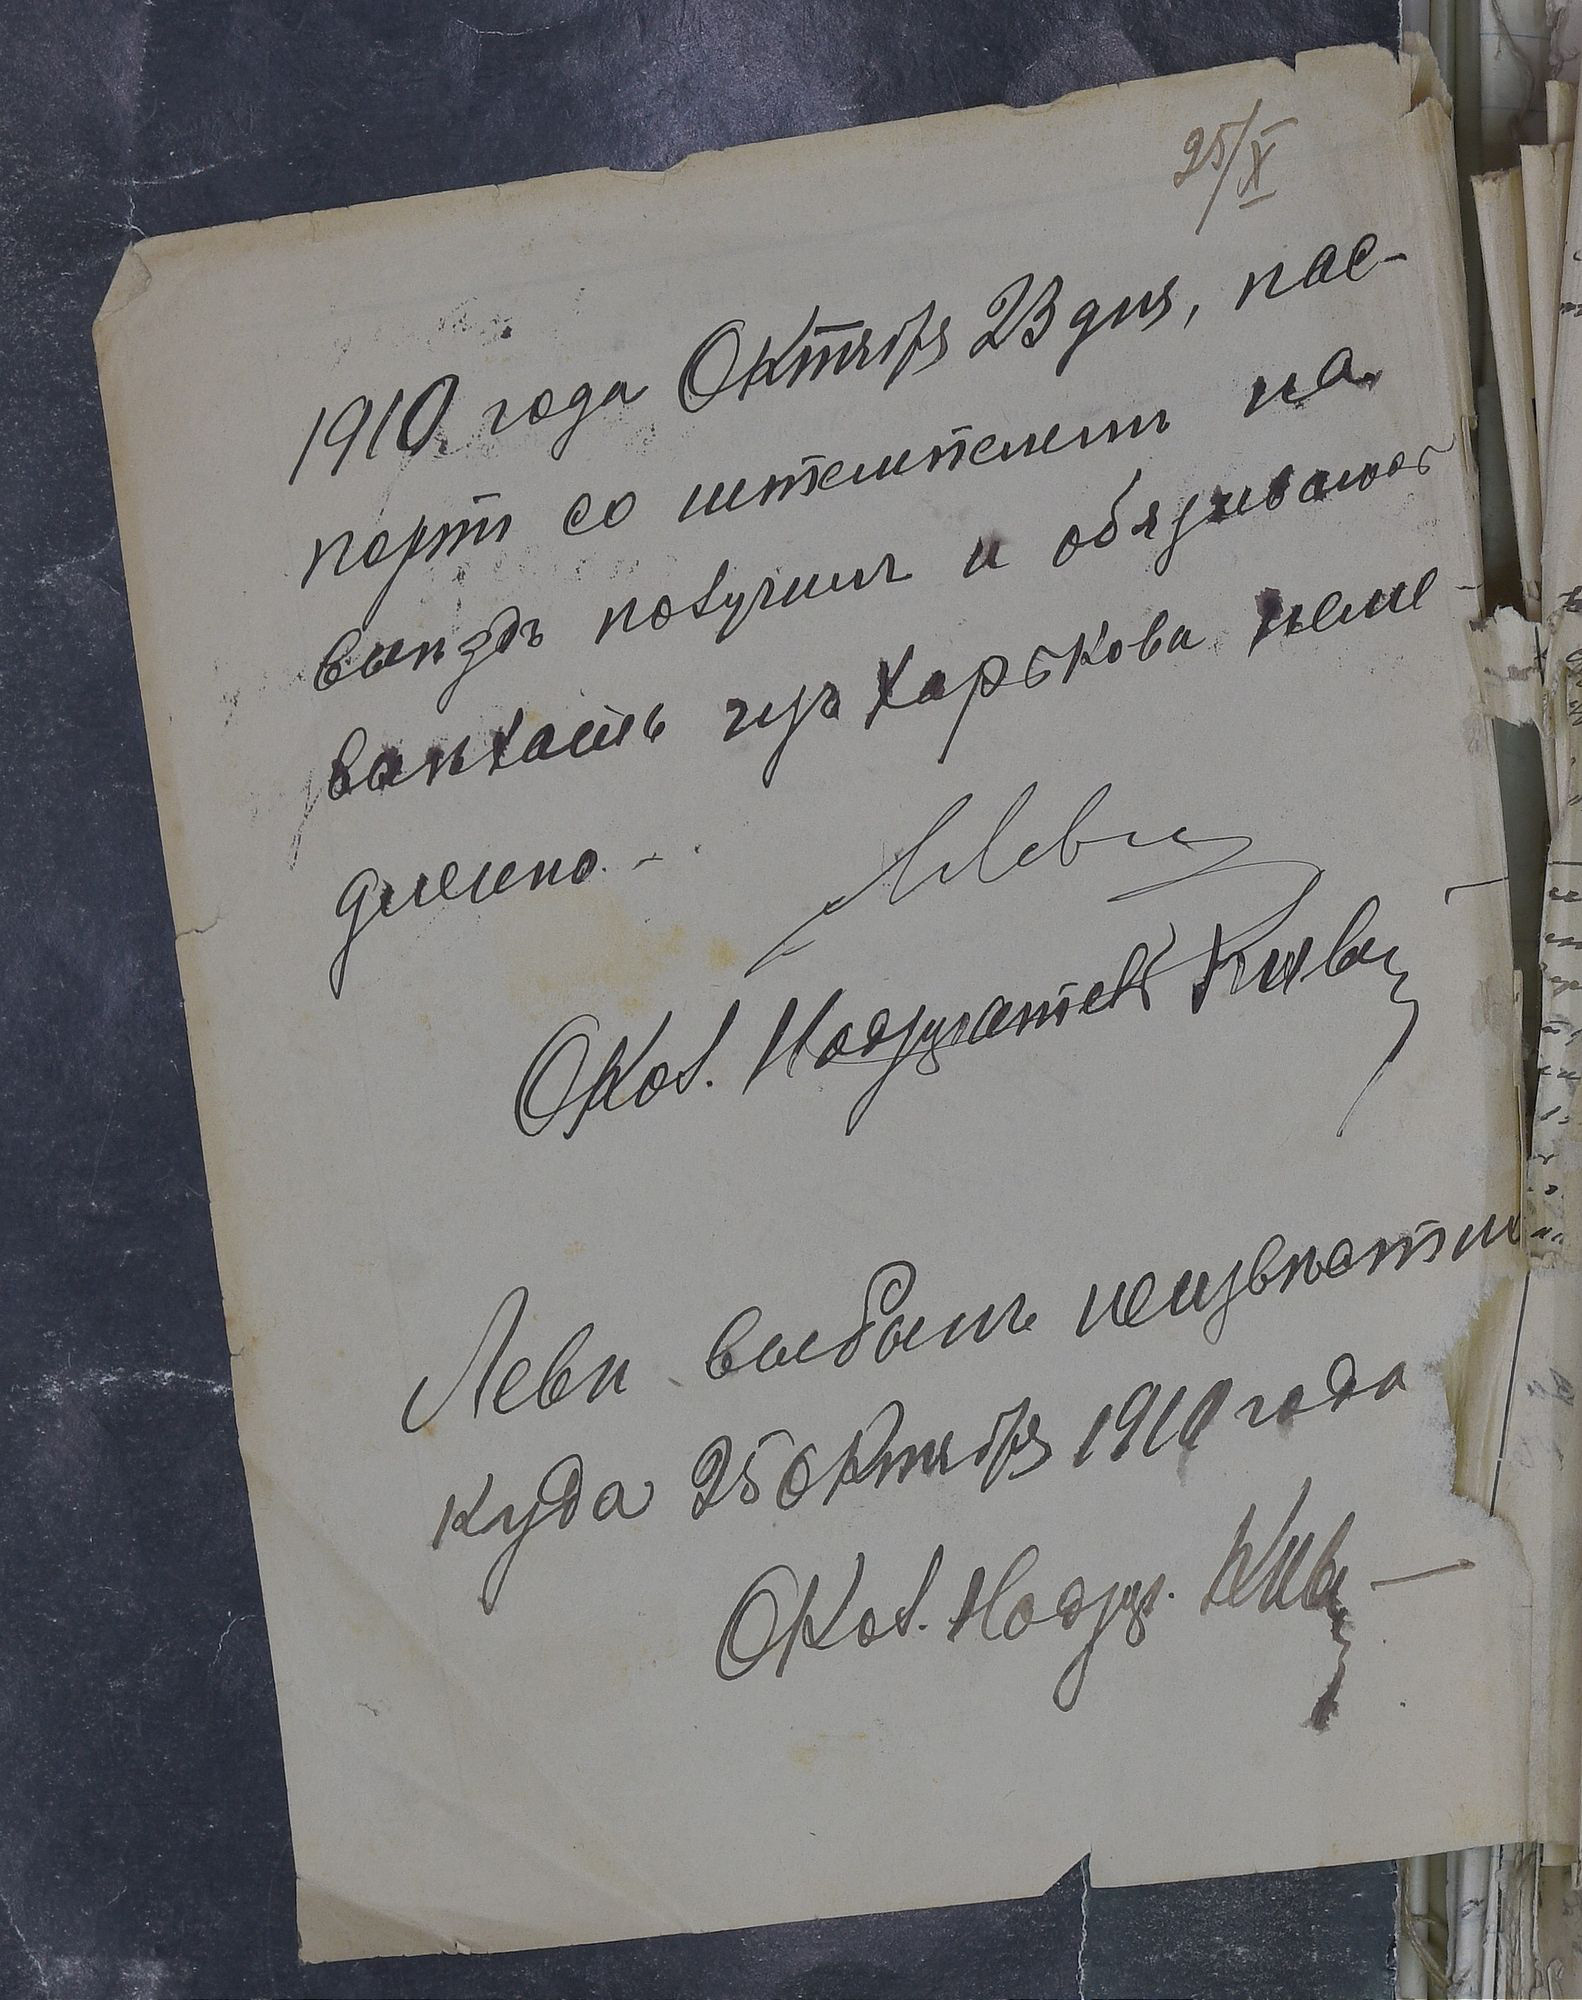 25/X
1910 года Октября 23 дня, пас-
портъ со штемпелемъ на
выѣздъ получилъ и обязываюсь
выѣхать изъ Харькова неме-
дленно. -
Леви
Окол. Надзиратель
Леви выбылъ неизвѣстно
куда 25 октября 1910 года
Окол. Надзир.